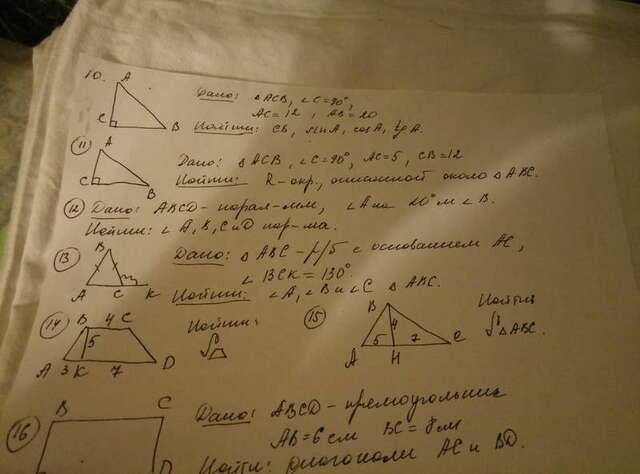 10. A
Дано: △ACB, ∠C=90°,
AC=12, AB=20
C B Найти: CB, sin A, cos A, tg A.
11 A
Дано: △ACB, ∠C=90°, AC=5, CB=12
C B Найти: R-окр., описанной около △ABC.
12 Дано: ABCD - парал-мм, ∠A на 20° м ∠B.
Найти: ∠A, B, C и D пар-ма.
13 B Дано: △ABC - р/б с основанием AC,
∠BCK = 130°.
A C K Найти: ∠A, ∠B и ∠C △ABC.
14 B 4 C Найти:
5 S
A 3 K 7 D
15 B Найти
4 S △ABC.
A 5 H 7 C
16 B C Дано: ABCD - прямоугольник
AB=6 см BC=8 см
D Найти: диагонали AC и BD.